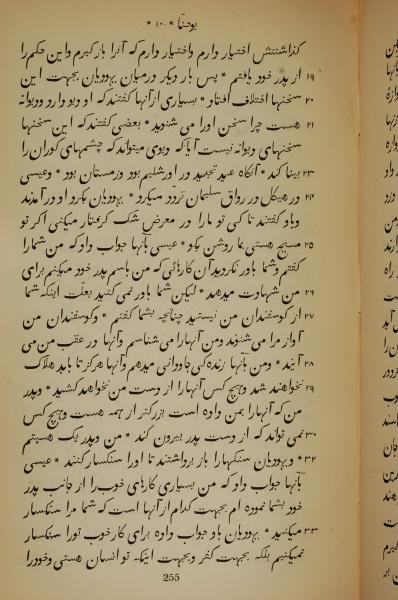 یوحنّا * ۱۰ *
گذاشتنش اختیار دارم واختیار دارم که آنرا باز گیرم واین حکم را
۱۹ از پدر خود یافتم * پس بار دیگر درمیان یهودیان بجهت این
۲۰ سخنها اختلاف افتاد * بسیاری از آنها گفتند که او دیو دارد ودیوانه
۲۱ هست چرا سخن اورا می شنوید * بعضی گفتند که این سخنها
سخنهای دیوانه نیست آیا که دیوی میتواند که چشمهای کوران را
۲۳ بینا کند * آنگاه عید تجدید در اورشلیم بود وزمستان بود * وعیسی
۲۴ در هیکل در رواق سلیمان تردّد میکرد * یهودیان بگرد او در آمدند
وباو گفتند تا کی تو مارا در معرض شک گرفتار میکنی اگر تو
۲۵ مسیح هستی بما روشن بگو * عیسی بآنها جواب داد که من شمارا
گفتم وشما باور نکردید آن کارهائی که من باسم پدر خود میکنم برای
۲۶ من شهادت میدهد * لیکن شما باور نمی کنید بعلّت اینکه شما
۲۷ از گوسفندان من نیستید چنانچه بشما گفتم * وگوسفندان من
آواز مرا می شنوند ومن آنهارا می شناسم وآنها در عقب من می
۲۸ آیند * ومن بآنها زندهٔ جاودانی میدهم وآنها هرگز تا باید هلاک
۲۹ نخواهند شد وهیچ کس آنهارا از دست من نخواهد کشید * وپدر
من که آنهارا بمن داده است بزرگتر از همه هست وهیچ کس
۳۰ نمی تواند که از دست پدر بیرون کند * من وپدر یک هستیم
۳۲ * ویهودیان سنگهارا باز برداشتند تا اورا سنگسار کنند * عیسی
بآنها جواب داد که من بسیاری کارهای خوب را از جانب پدر
خود بشما نموده ام بجهت کدام از آنها است که شما مرا سنگسار
۳۳ میکنید * یهودیان باو جواب داده برای کار خوب تورا سنگسار
نمیکنیم بلکه بجهت کفر وبجهت اینکه تو انسان هستی وخودرا
255